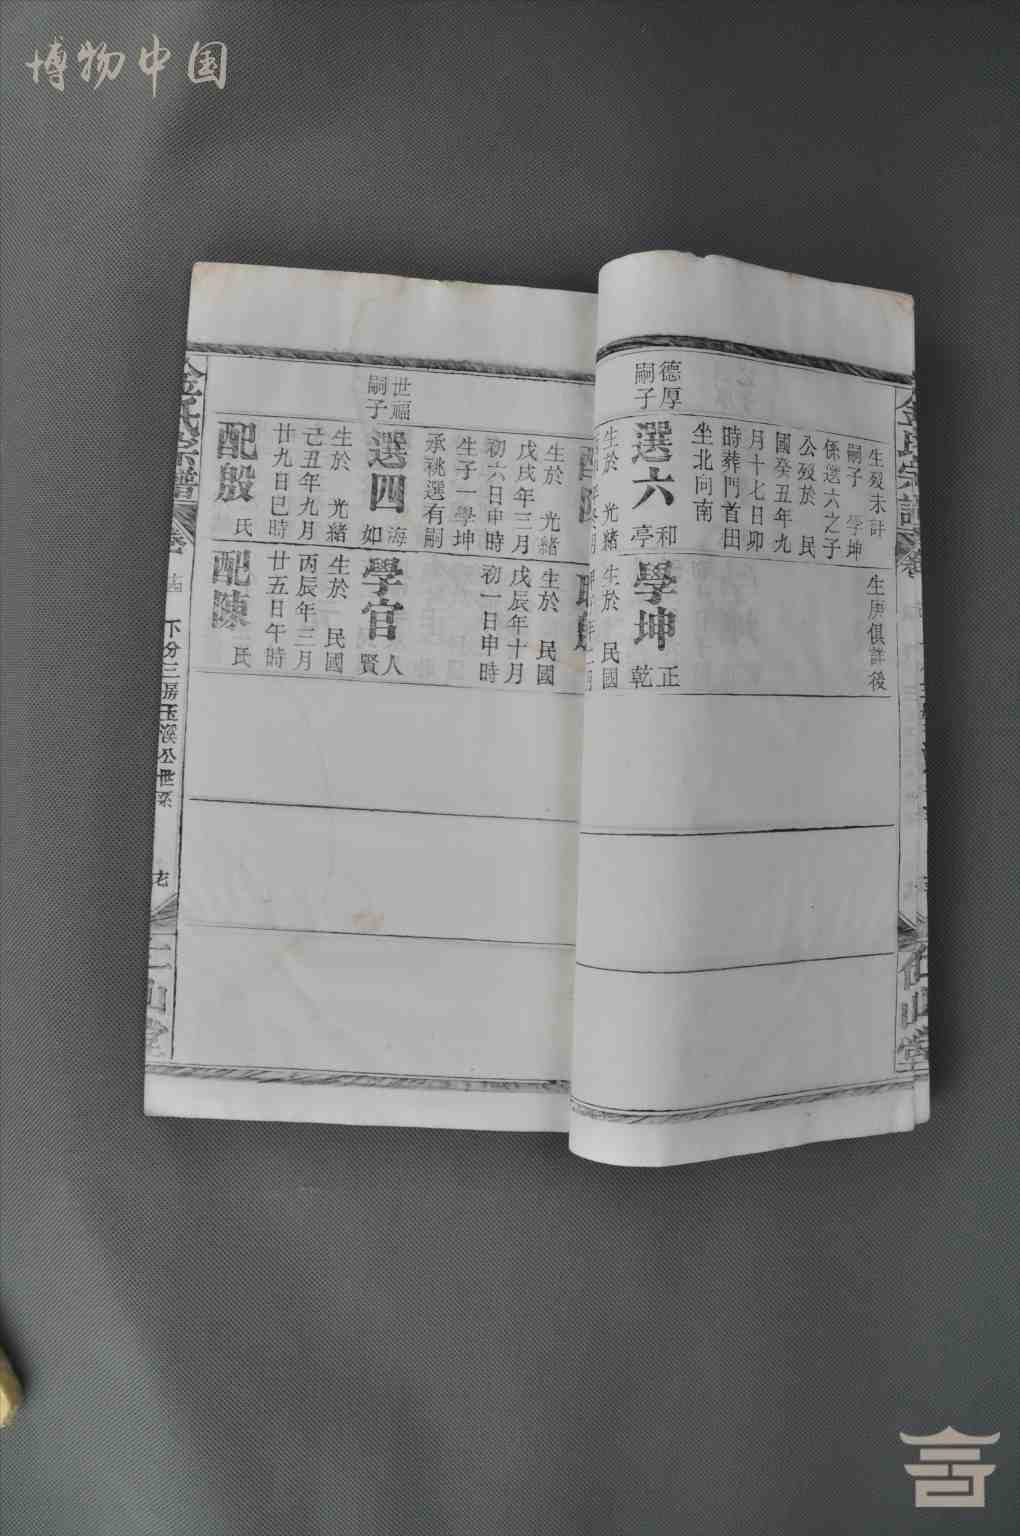 博物中国
金氏宗譜
生歿未計
嗣子 學坤
係選六之子
公歿於 民
國癸丑年九
月十七日卯
時葬門首田
坐北向南
德厚
嗣子
選六
和
亭
生於 光緒
生庚俱詳後
學坤
正
乾
生於 民國
仁山堂
生於 光緒
戊戌年三月
初六日申時
生子一學坤
承祧選有嗣
世福
嗣子
選四
海
如
生於 光緒
己丑年九月
廿九日巳時
配殷
氏
生於 民國
戊辰年十月
初一日申時
學官
人
賢
生於 民國
丙辰年三月
廿五日午時
配陳
氏
金氏宗譜
下分三房玉溪公世系
仁山堂